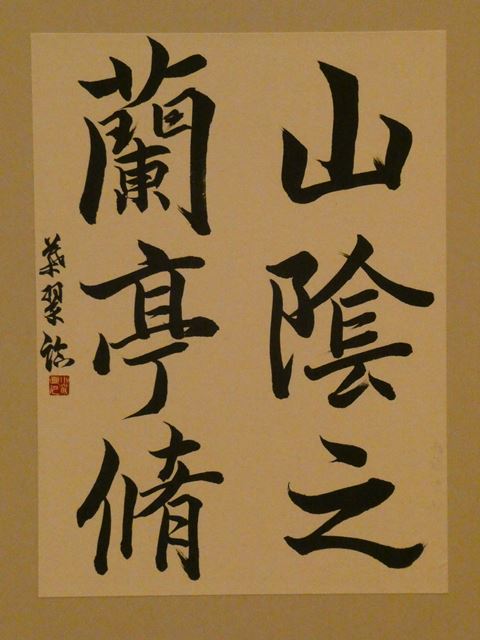 山陰之
蘭亭脩
翠